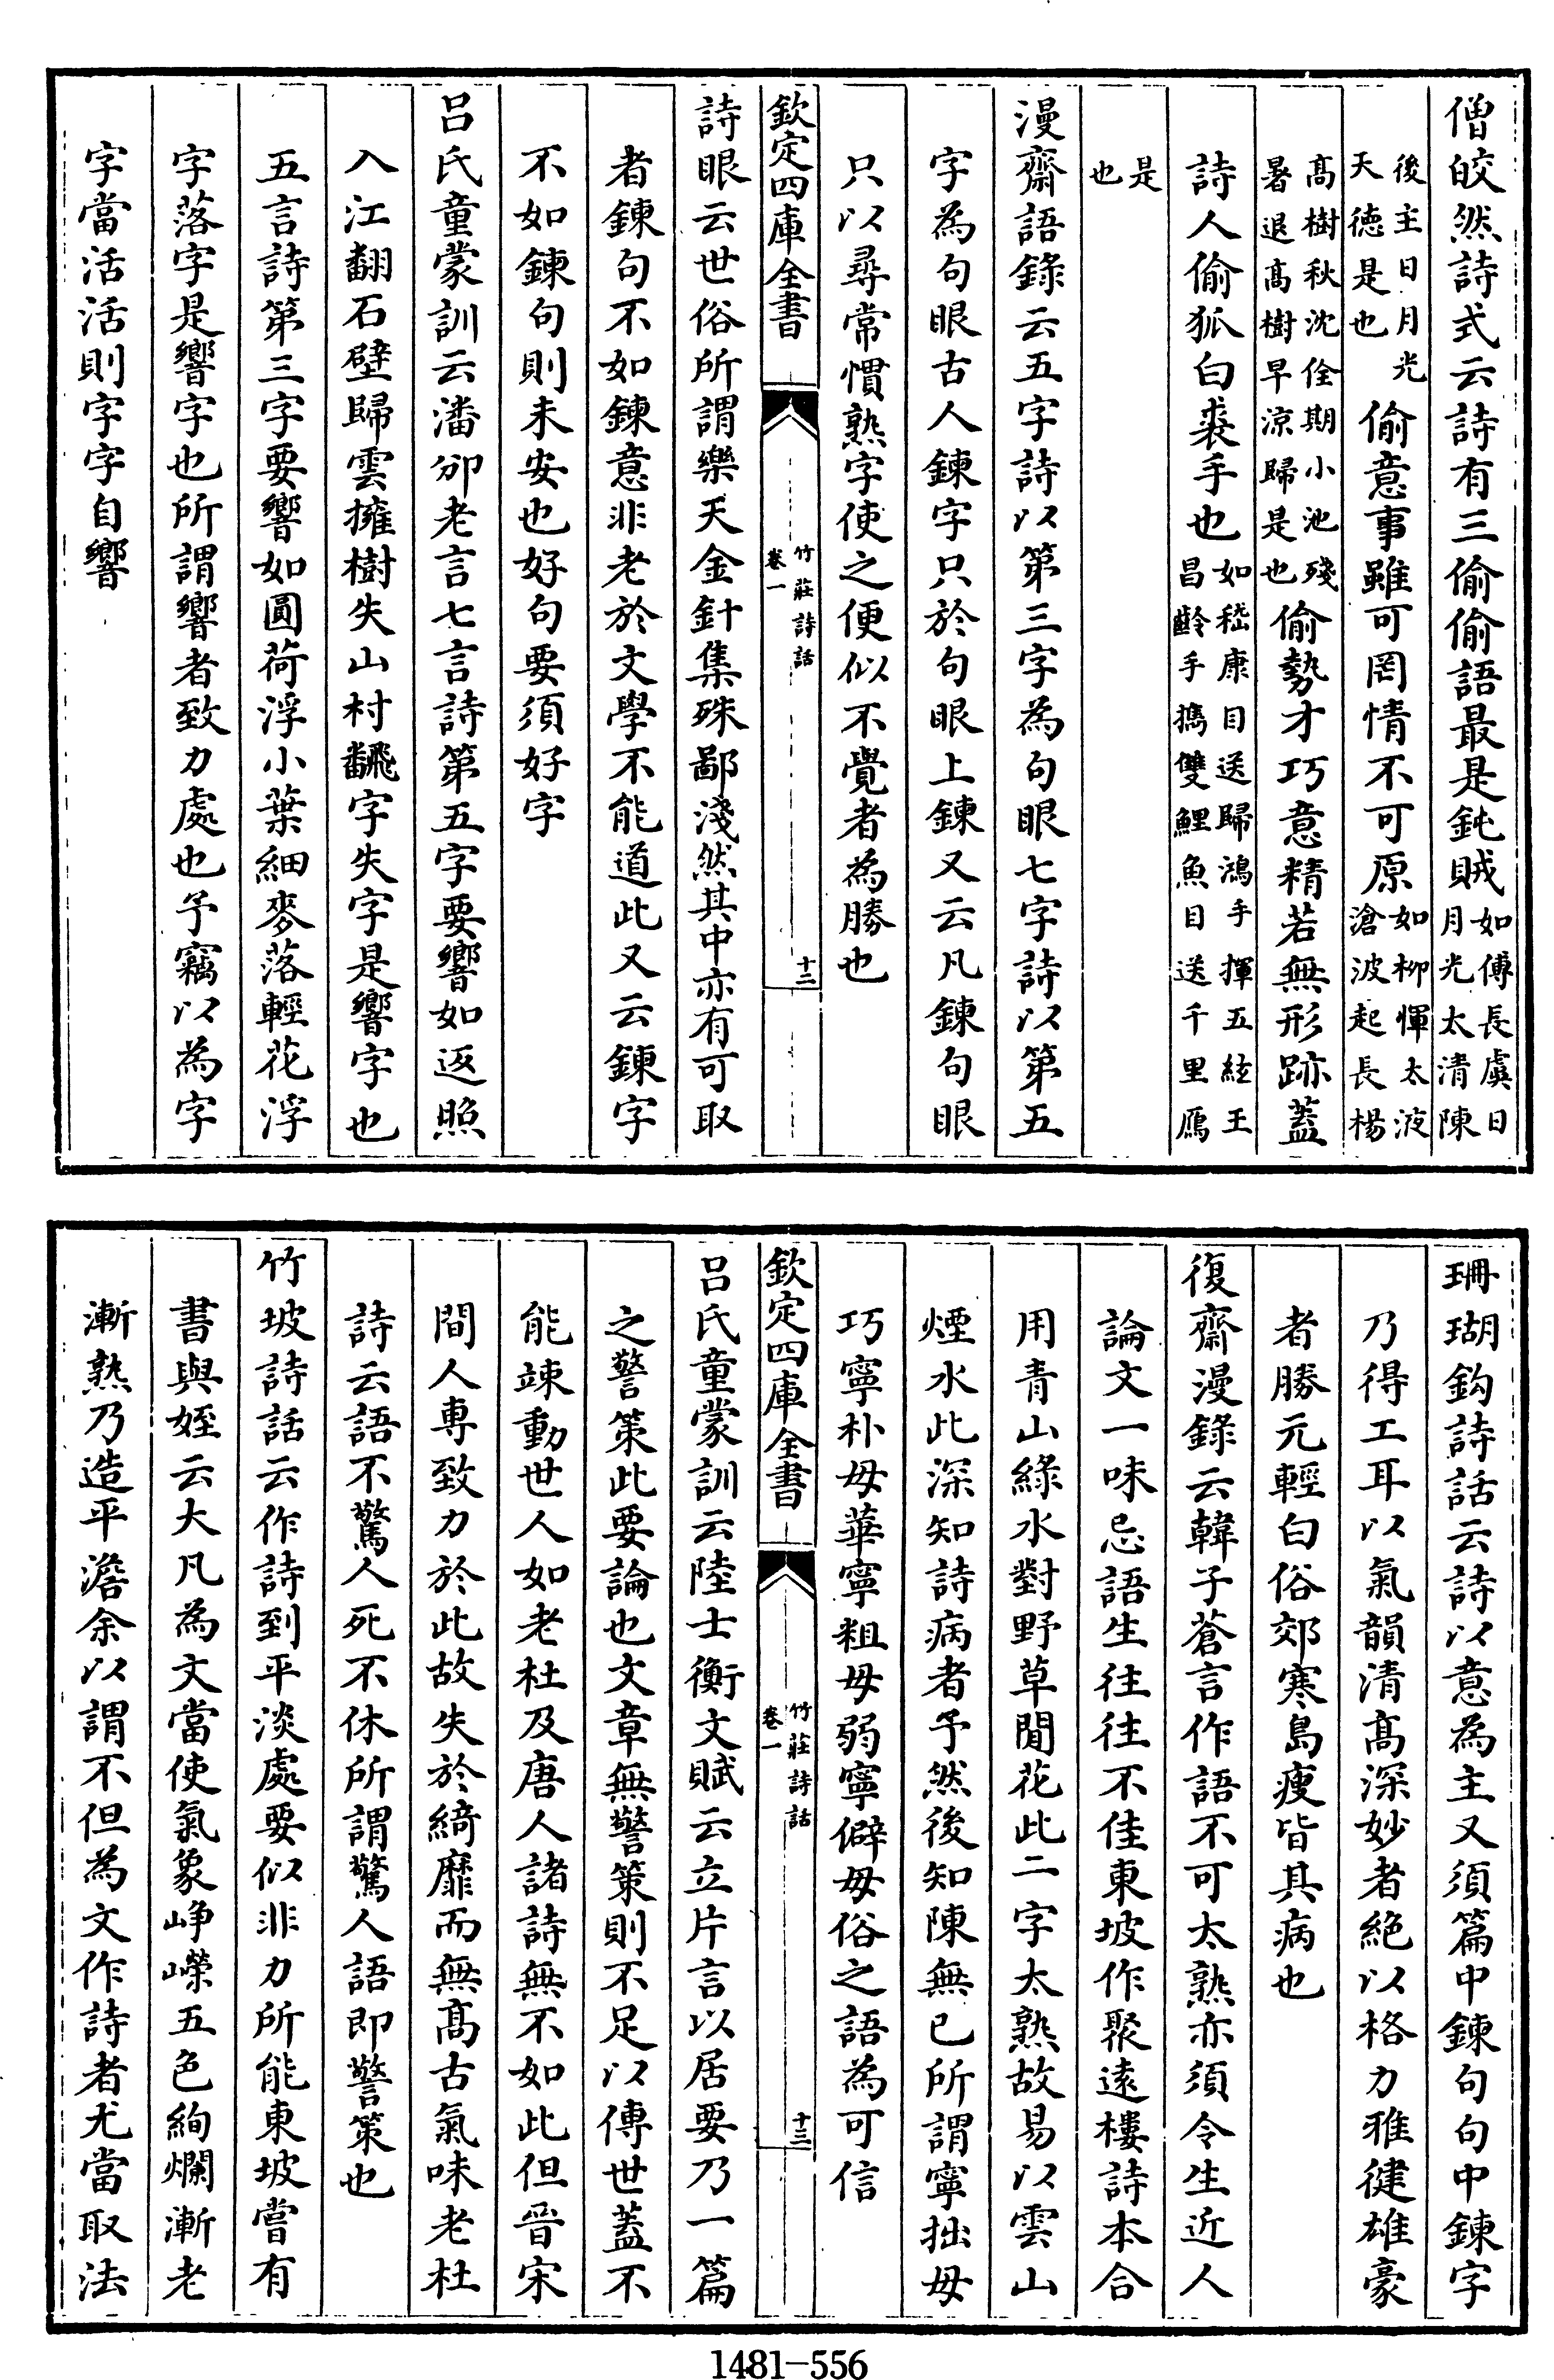 僧皎然詩式云詩有三偷偷語最是鈍賊如傅長虞日月光太清陳
後主日月光天德是也偷意事雖可罔情不可原如柳惲太液滄波起長楊
高樹秋沈佺期小池殘暑退高樹早涼歸是也偷勢才巧意精若無形跡蓋
詩人偷狐白裘手也如嵇康目送歸鴻手揮五絃王昌齡手攜雙鯉魚目送千里鴈
是也
漫齋語錄云五字詩以第三字為句眼七字詩以第五
字為句眼古人鍊字只於句眼上鍊又云凡鍊句眼
只以尋常慣熟字使之便似不覺者為勝也
欽定四庫全書 竹莊詩話 卷一 十二
詩眼云世俗所謂樂天金針集殊鄙淺然其中亦有可取
者鍊句不如鍊意非老於文學不能道此又云鍊字
不如鍊句則未安也好句要須好字
呂氏童蒙訓云潘邠老言七言詩第五字要響如返照
入江翻石壁歸雲擁樹失山村翻字失字是響字也
五言詩第三字要響如圓荷浮小葉細麥落輕花浮
字落字是響字也所謂響者致力處也予竊以為字
字當活活則字字自響
珊瑚鈎詩話云詩以意為主又須篇中鍊句句中鍊字
乃得工耳以氣韻清高深妙者絕以格力雅健雄豪
者勝元輕白俗郊寒島瘦皆其病也
復齋漫錄云韓子蒼言作語不可太熟亦須令生近人
論文一味忌語生往往不佳東坡作聚遠樓詩本合
用青山綠水對野草閒花此二字太熟故易以雲山
煙水此深知詩病者予然後知陳無已所謂寧拙毋
巧寧朴毋華寧粗毋弱寧僻毋俗之語為可信
欽定四庫全書 竹莊詩話 卷一 十三
呂氏童蒙訓云陸士衡文賦云立片言以居要乃一篇
之警策此要論也文章無警策則不足以傳世蓋不
能竦動世人如老杜及唐人諸詩無不如此但晉宋
間人專致力於此故失於綺靡而無高古氣味老杜
詩云語不驚人死不休所謂驚人語即警策也
竹坡詩話云作詩到平淡處要似非力所能東坡嘗有
書與姪云大凡為文當使氣象崢嶸五色絢爛漸老
漸熟乃造平澹余以謂不但為文作詩者尤當取法
1481-556